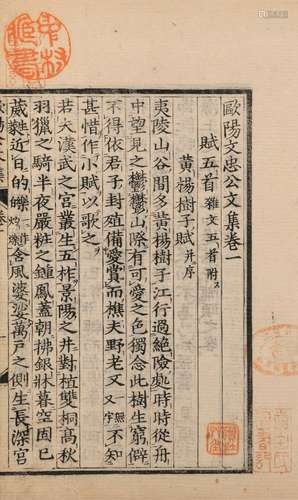 歐陽文忠公文集卷一
賦五首 雜文五首附
黃楊樹子賦 并序
夷陵山谷間多黃楊樹子江行過絕險處時時從舟
中望見之鬱鬱山際有可愛之色獨念此樹生窮僻
不得依君子封殖備愛賞而樵夫野老又一無又字不知
甚惜作小賦以歌之
若夫漢武之宮叢生五柞景陽之井對植雙桐高秋
羽獵之騎半夜嚴粧之鍾鳳蓋朝拂銀牀暮空固已
葳蕤近日的皪含風婆娑萬戶之側生長深宮